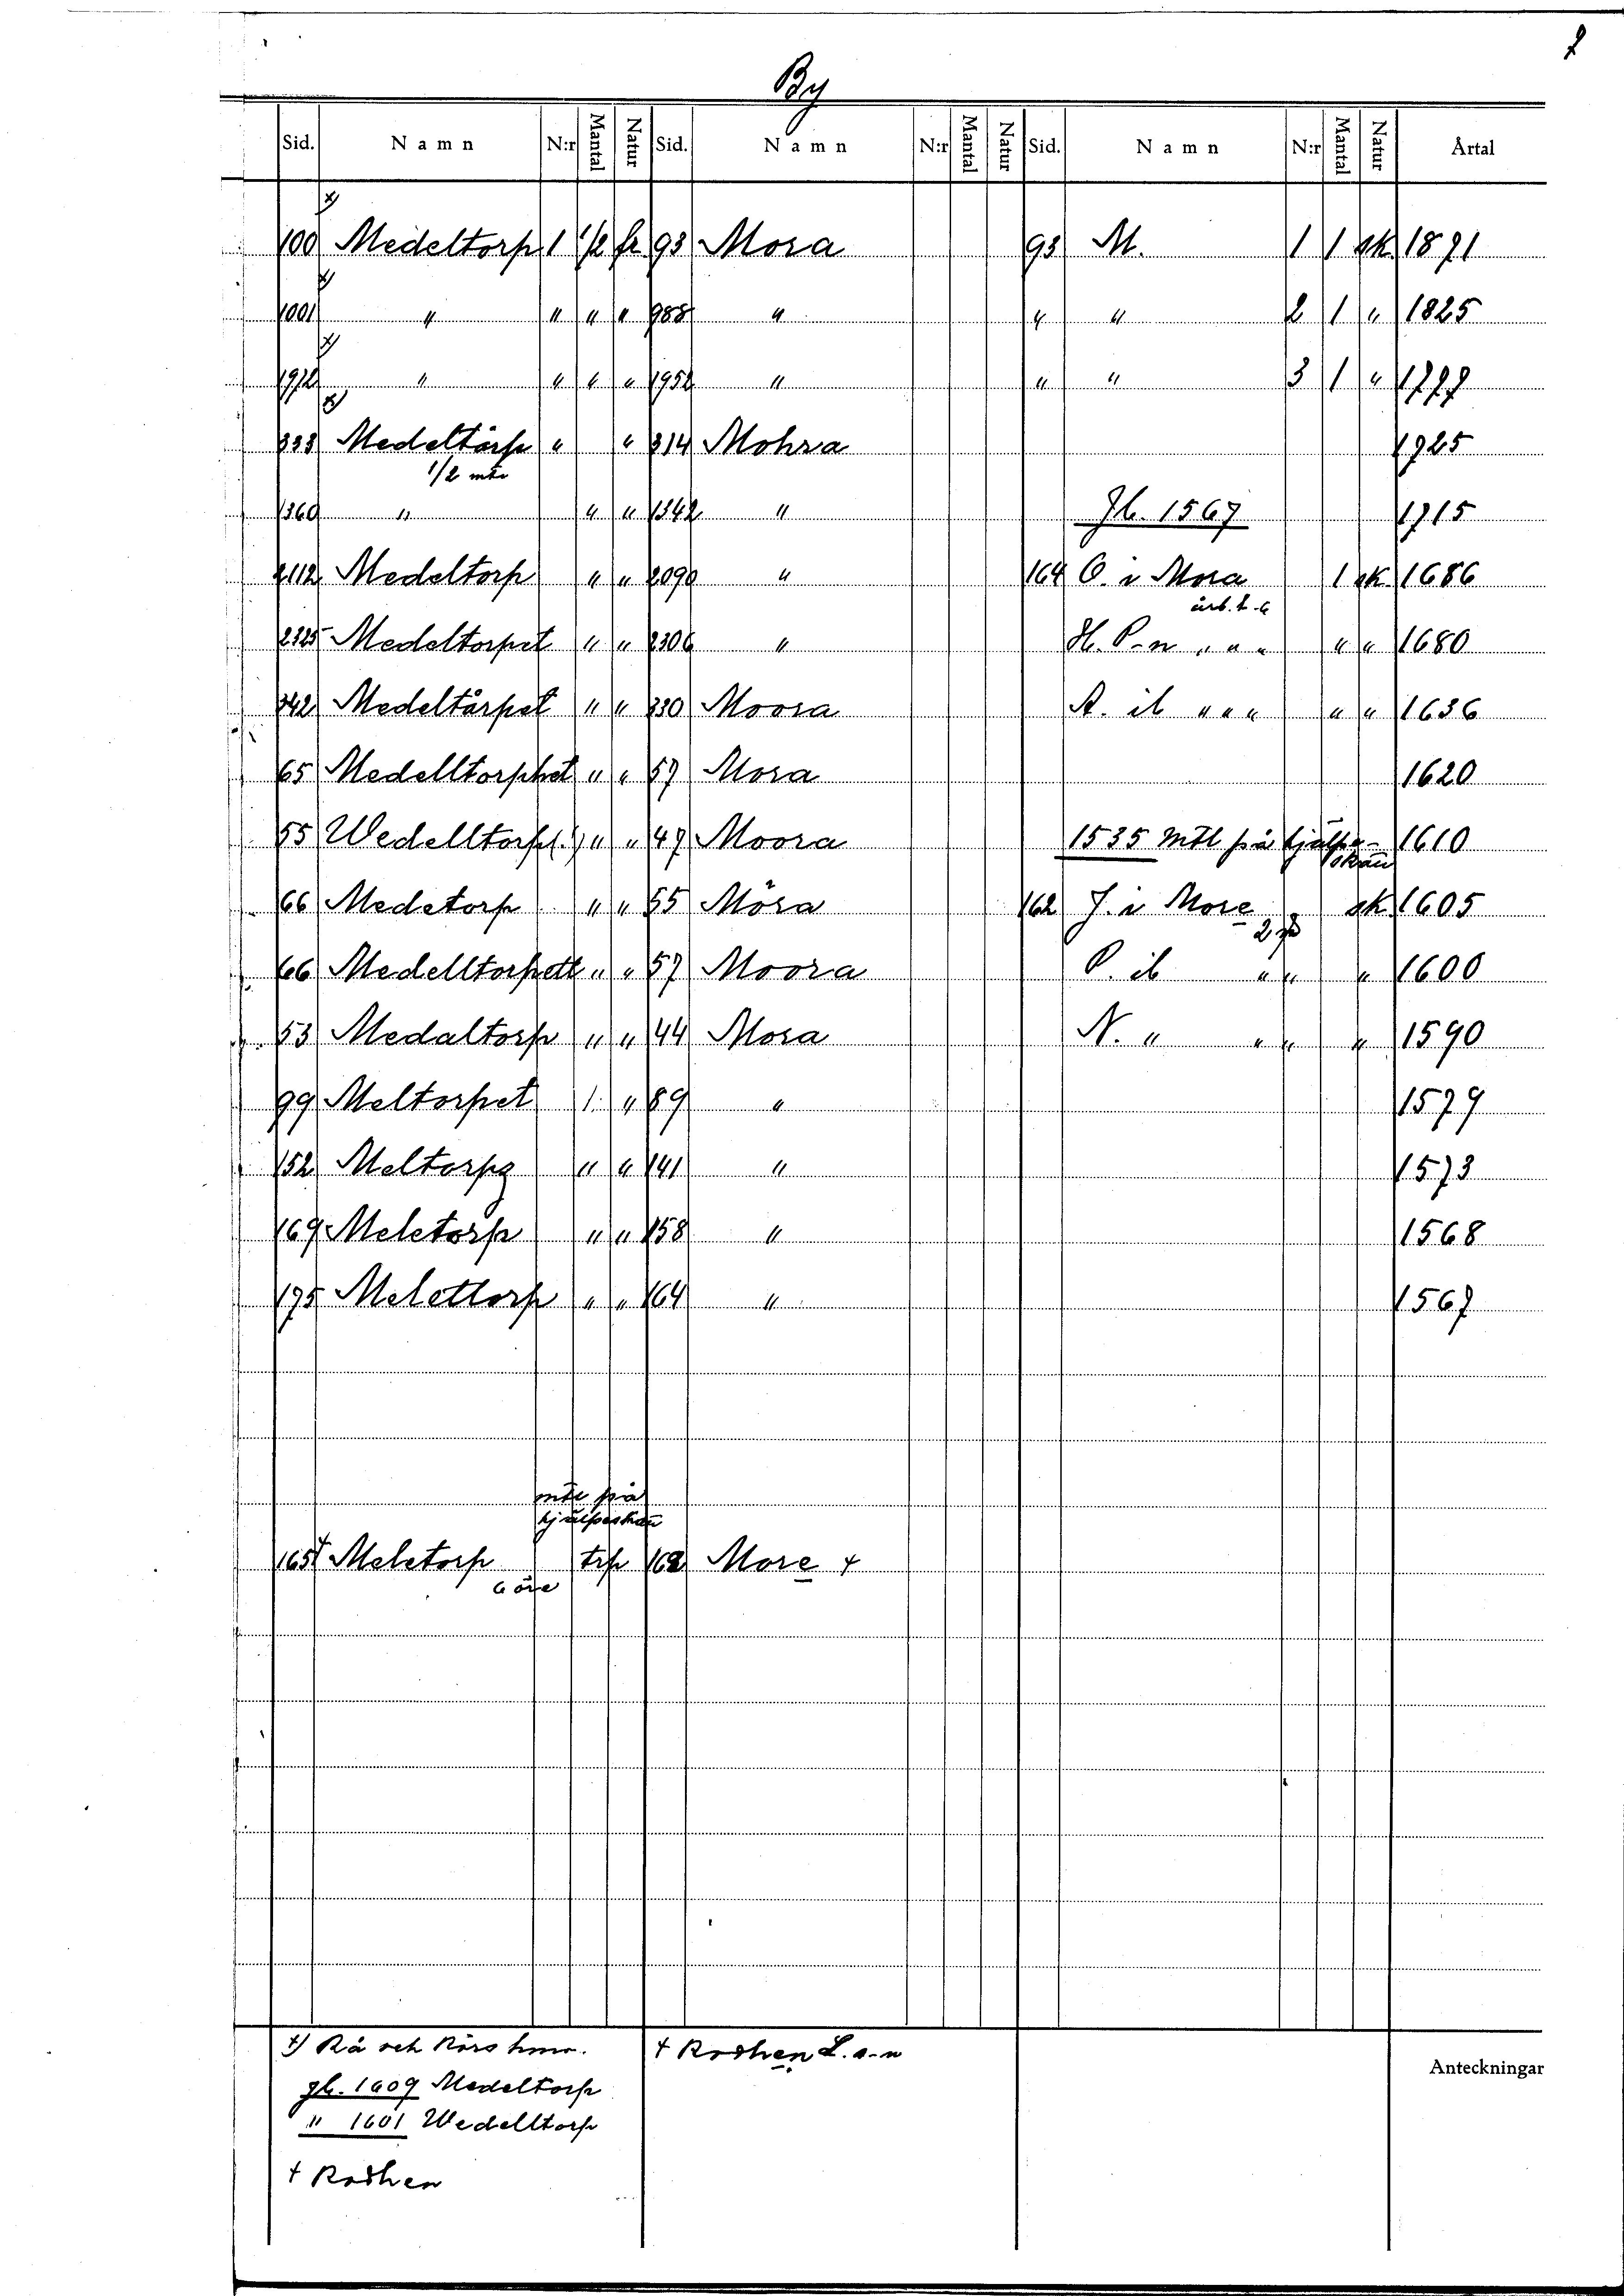 By
Sid. Namn N:r Mantal Natur Sid. Namn N:r Mantal Natur Sid. Namn N:r Mantal Natur Årtal
100 Medeltorp 1 1/2 fr 93 Mora 93 M. 1 1 sk. 1871
1001 " " " " 988 " " " 2 1 " 1825
1972 " " " " 1952 " " " 3 1 " 1777
333 Medeltårp " " 314 Mohra 1725
1/2 mtl
1360 " " " 1342 " Jb. 1567 1715
2112 Medeltorp " " 2090 " 164 O. i Mora 1 sk. 1686
2325 Medeltorpet " " 2306 " H. P-n " " " " " 1680
342 Medeltårpet " " 330 Moora A. ib " " " " " 1636
65 Medelltorphet " " 57 Mora 1620
55 Wedelltorp(.) " " 47 Moora 1535 mtl på hjälpe- 1610
66 Medetorp " " 55 Måra 162 J. i More sk 1605
66 Medelltorpett " " 57 Moora P. ib " " " 1600
53 Medaltorp " " 44 Mora N. " " " " 1590
99 Meltorpet 1 " 89 " 1579
152 Meltorpz " " 141 " 1573
169 Meletorp " " 158 " 1568
175 Melettorp " " 164 " 1567
mtl på
165 + Meletorp trp 162 More +
6 öre
+) Rå och Rörs hmn.
gb. 1609 Medeltorp
" 1601 Wedelltorp
+ Rodhen
+ Rodhen L. s-n
Anteckningar